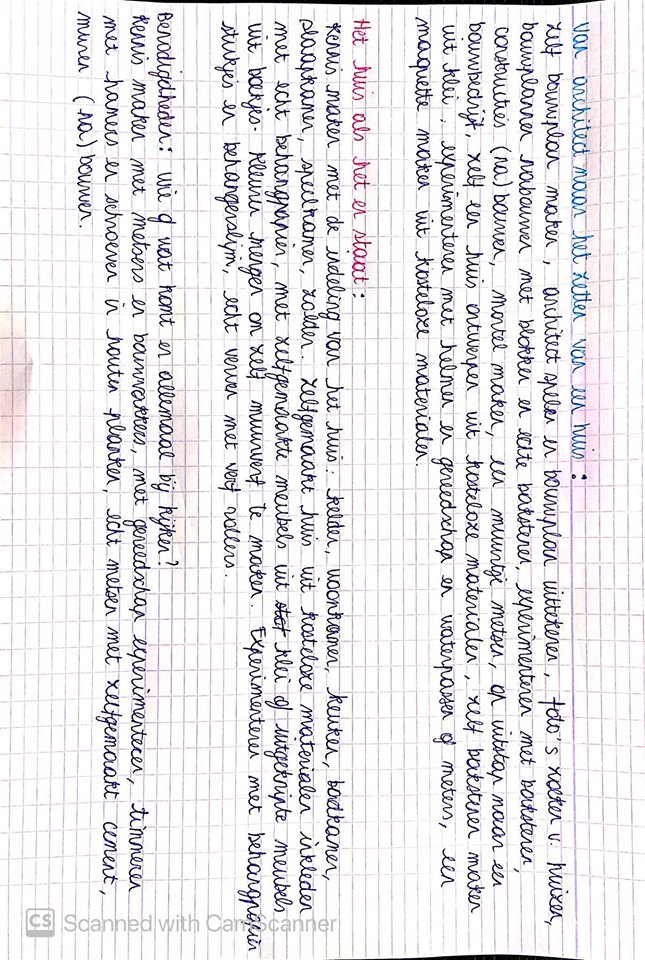 Van architect naar het zetten van een huis:
zelf bouwplan maken, architect spelen en bouwplan uittekenen, foto's zoeken v. huizen,
bouwplannen nabouwen met blokken en echte bakstenen, experimenteren met bakstenen,
constructies (na)bouwen, mortel maken, een muurtje metsen, op uitstap naar een
bouwbedrijf, zelf een huis ontwerpen uit kosteloze materialen, zelf bakstenen maken
uit klei, experimenteren met helmen en gereedschap en waterpassen of meters, een
maquette maken uit kosteloze materialen.
Het huis als het er staat:
Kennis maken met de indeling van het huis: kelder, woonkamer, keuken, badkamer,
slaapkamer, speelkamer, zolder. Zelfgemaakt huis uit kosteloze materialen inkleden
met echt behangpapier, met zelfgemaakte meubels uit klei of uitgeknipte meubels
uit boekjes. Kleuren mengen om zelf muurverf te maken. Experimenteren met behangpapier
stukjes en behangerslijm, echt verven met verf rollers.
Benodigdheden: wie of wat komt er allemaal bij kijken?
Kennis maken met metsers en bouwvakkers, met gereedschap experimenteren, timmeren
met hamers en schroeven in houten planken, echt metsen met zelfgemaakt cement,
muren (na)bouwen.
CS Scanned with CamScanner